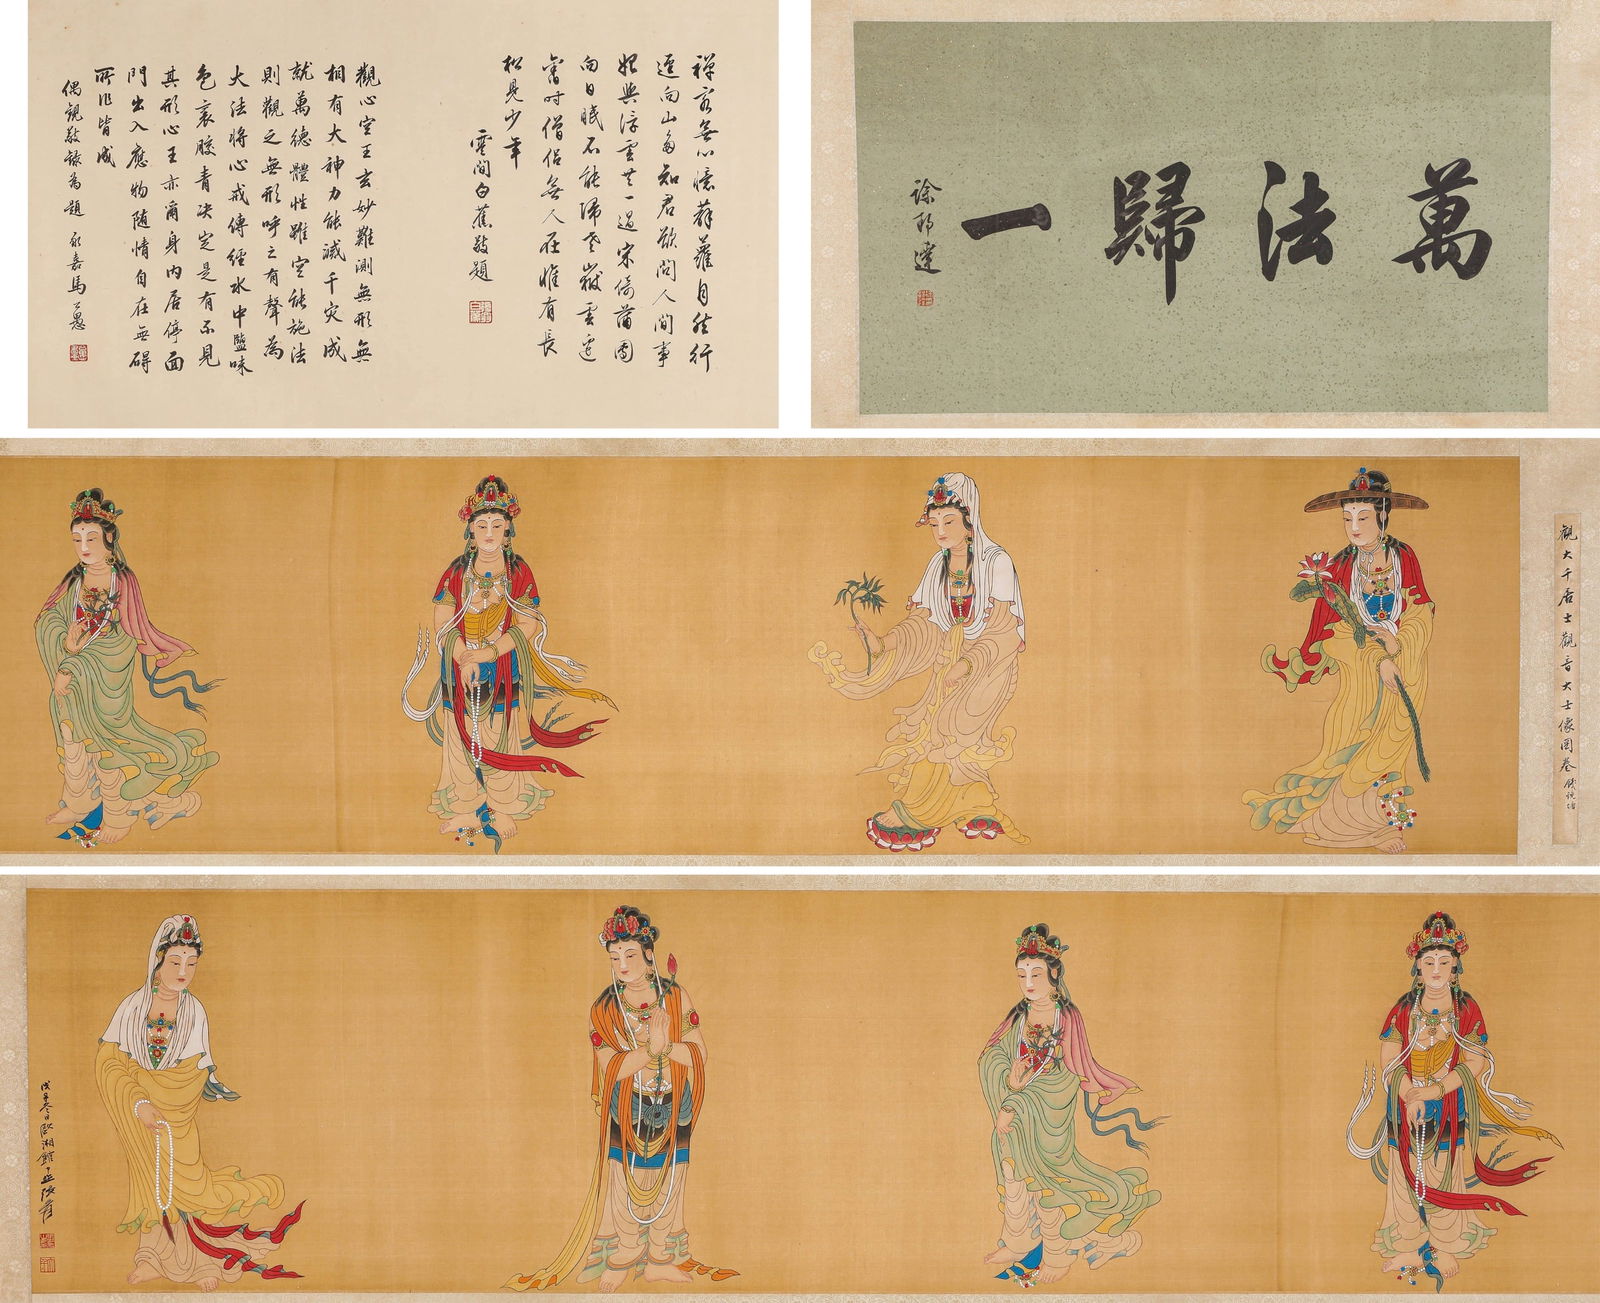 萬法歸一
徐邦達
禪客無心憶薜蘿自然行
逕向山多知君欲問人間事
始與浮雲共一過倚蒲團
向日眠不能歸老嶽雲邊
舊時僧侶無人在惟有長
松見少年
雲間白蕉敬題
觀心空王玄妙難測無形無
相有大神力能滅千災成
就萬德體性雖空能施法
則觀之無形呼之有聲為
大法將心戒傳經水中鹽味
色裏膠青決定是有不見
其形心王亦爾身內居停面
門出入應物随情自在無碍
所作皆成
偶觀敬錄為題 永嘉馬公愚
觀大千居士觀音大士像圖卷 錢鏡塘
戊子冬日歐湘館 張爰